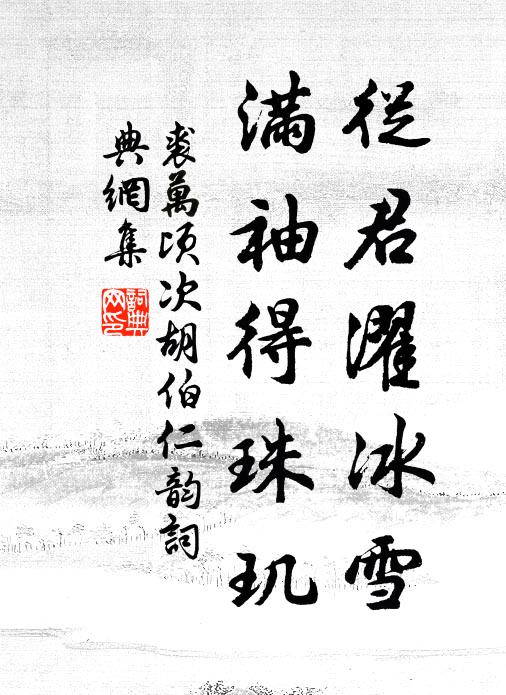 從君濯冰雪
滿袖得珠玑
裘萬頃次胡伯仁韵詞
典網集
詞典
网印